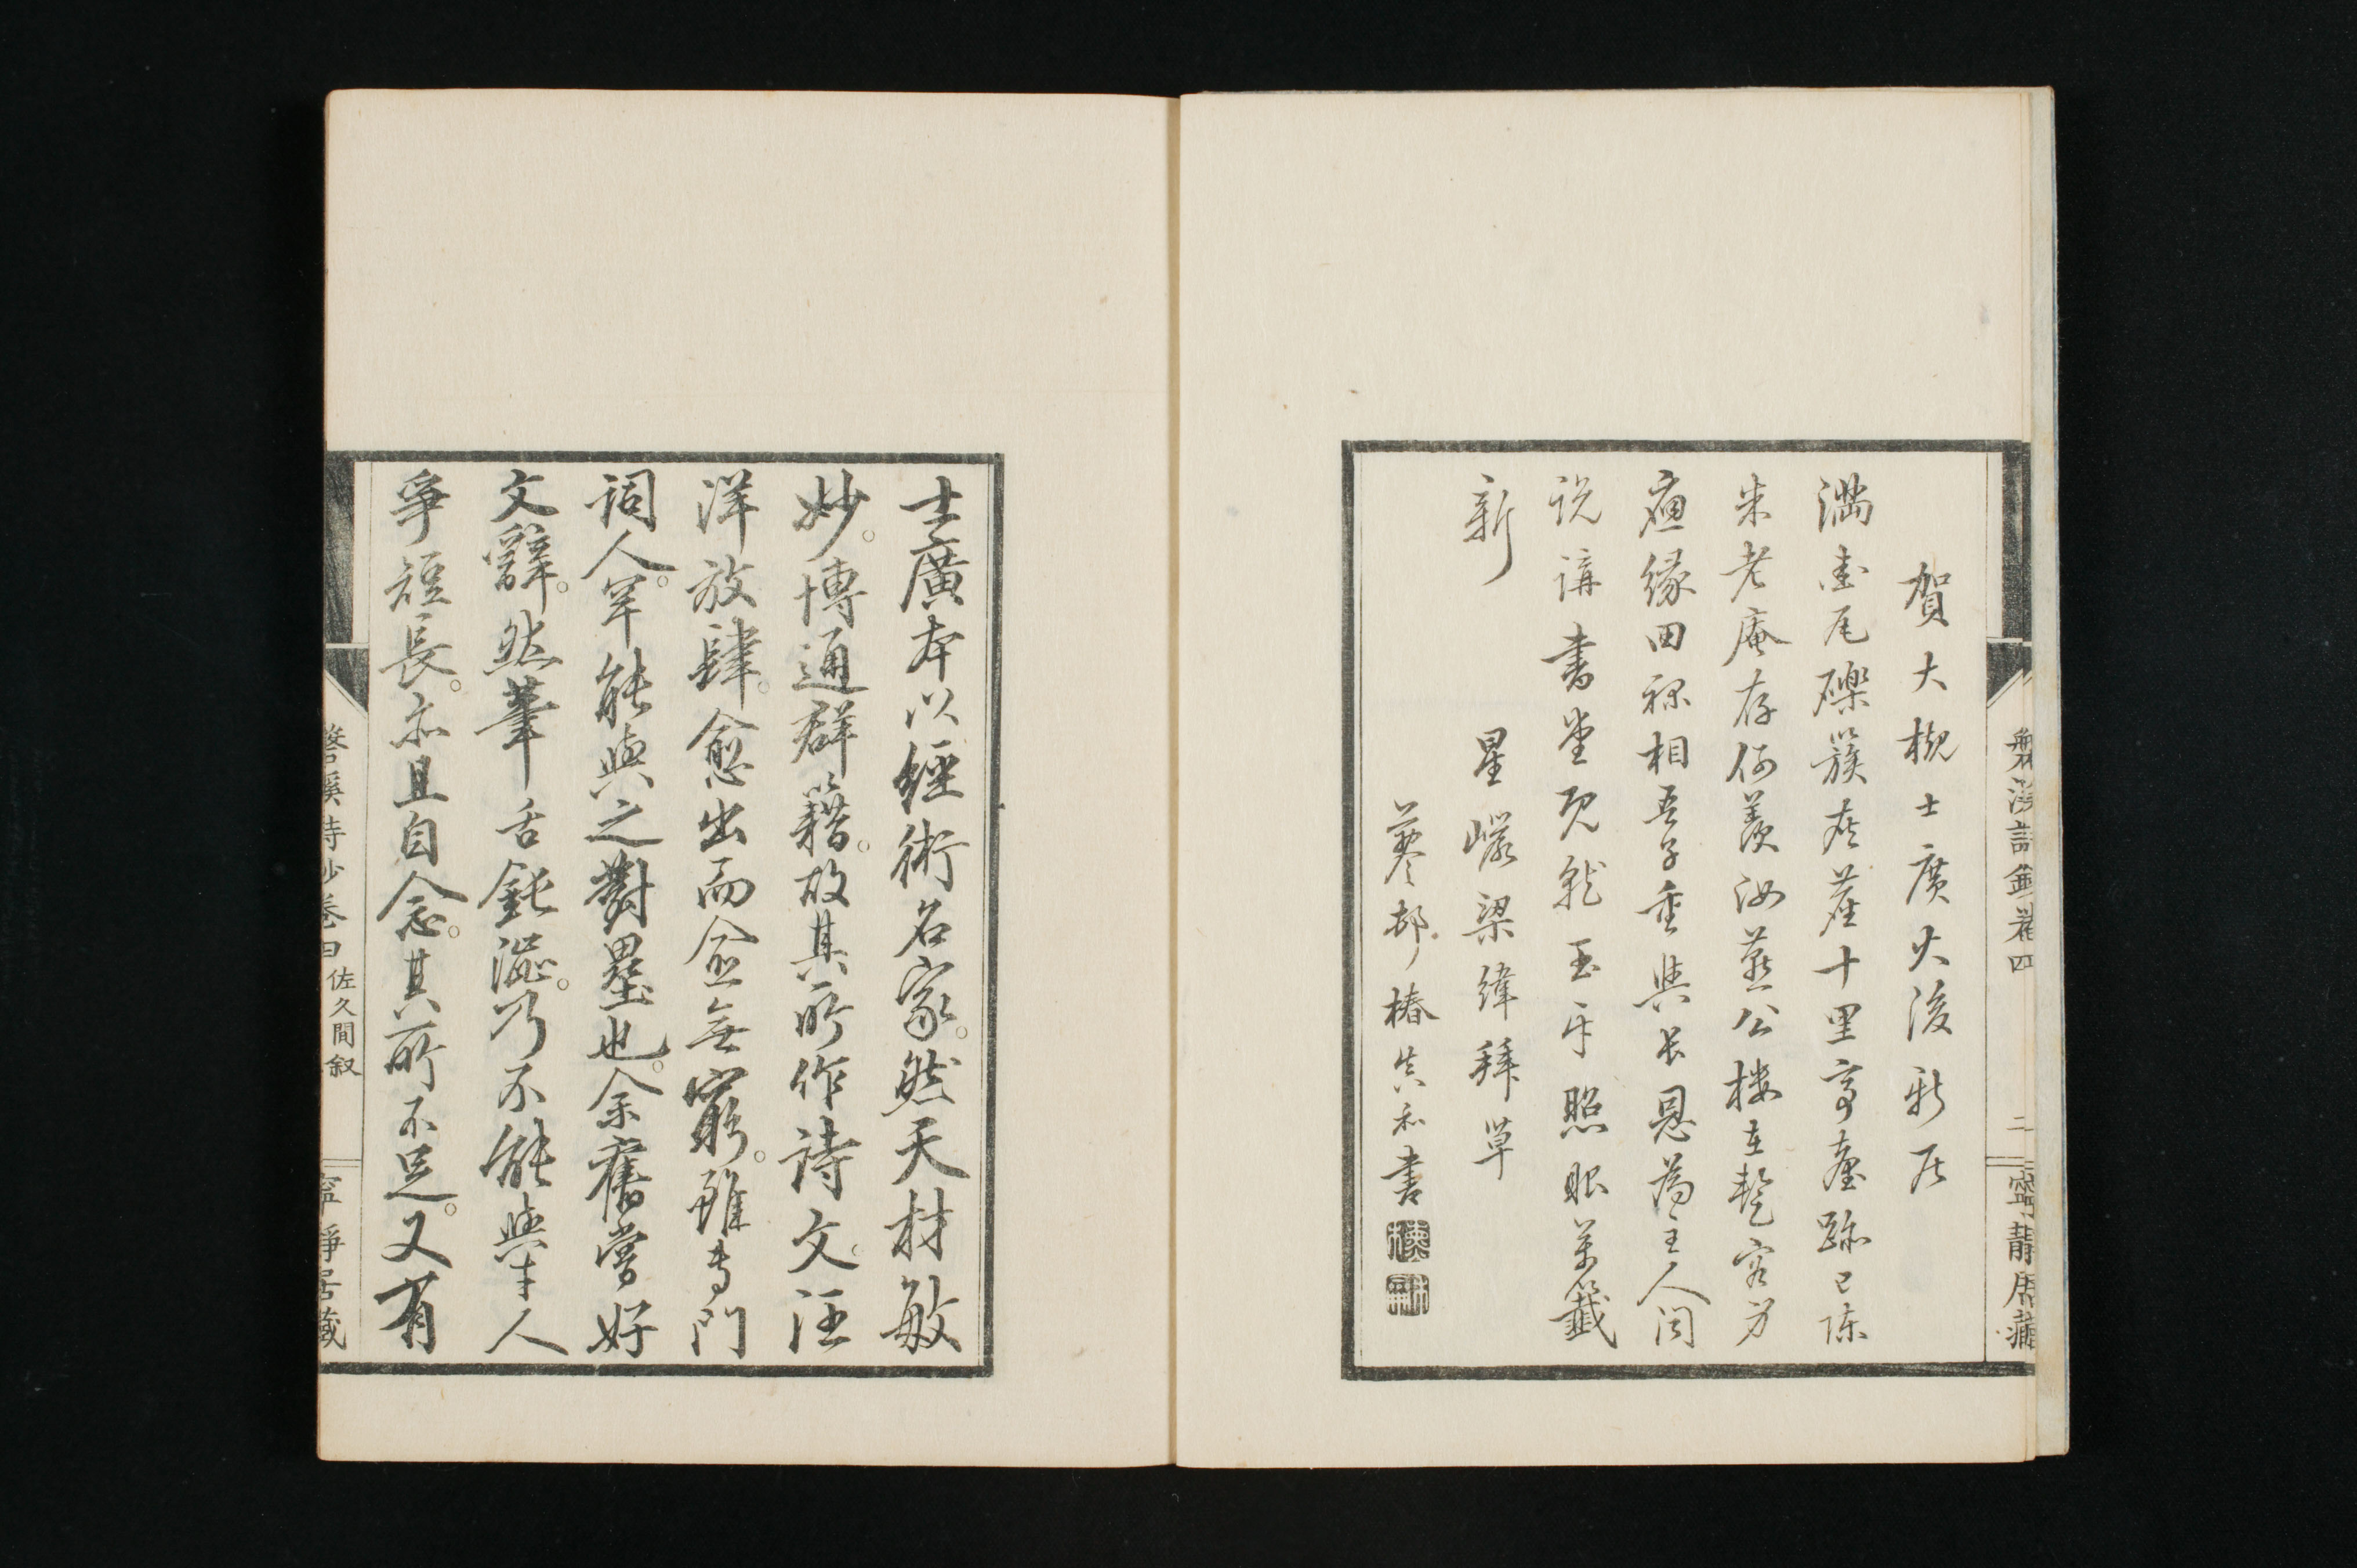 磐溪詩鈔卷四 二 寧靜居藏
賀大槻士廣火後新居
滿畫瓦礫簇灰塵十里亭臺跡已陳
米老庵存何羨汝燕公樓在暫容身
緣相吾子重與長恩為主人聞
說講書堂既就玉牙照眼萬籤
新
星巖梁緯拜草
蓼邨椿和書
士廣本以經術名家。然天材敏
妙。博通群籍。故其所作詩文。汪
洋放肆。愈出而愈無窮。雖專門
詞人。罕能與之對壘也。余舊嘗好
文辭。然筆舌鈍澁。乃不能與才人
爭短長。亦且自念。其所不足。又有
磐溪詩鈔卷四 佐久間叙 寧靜居藏